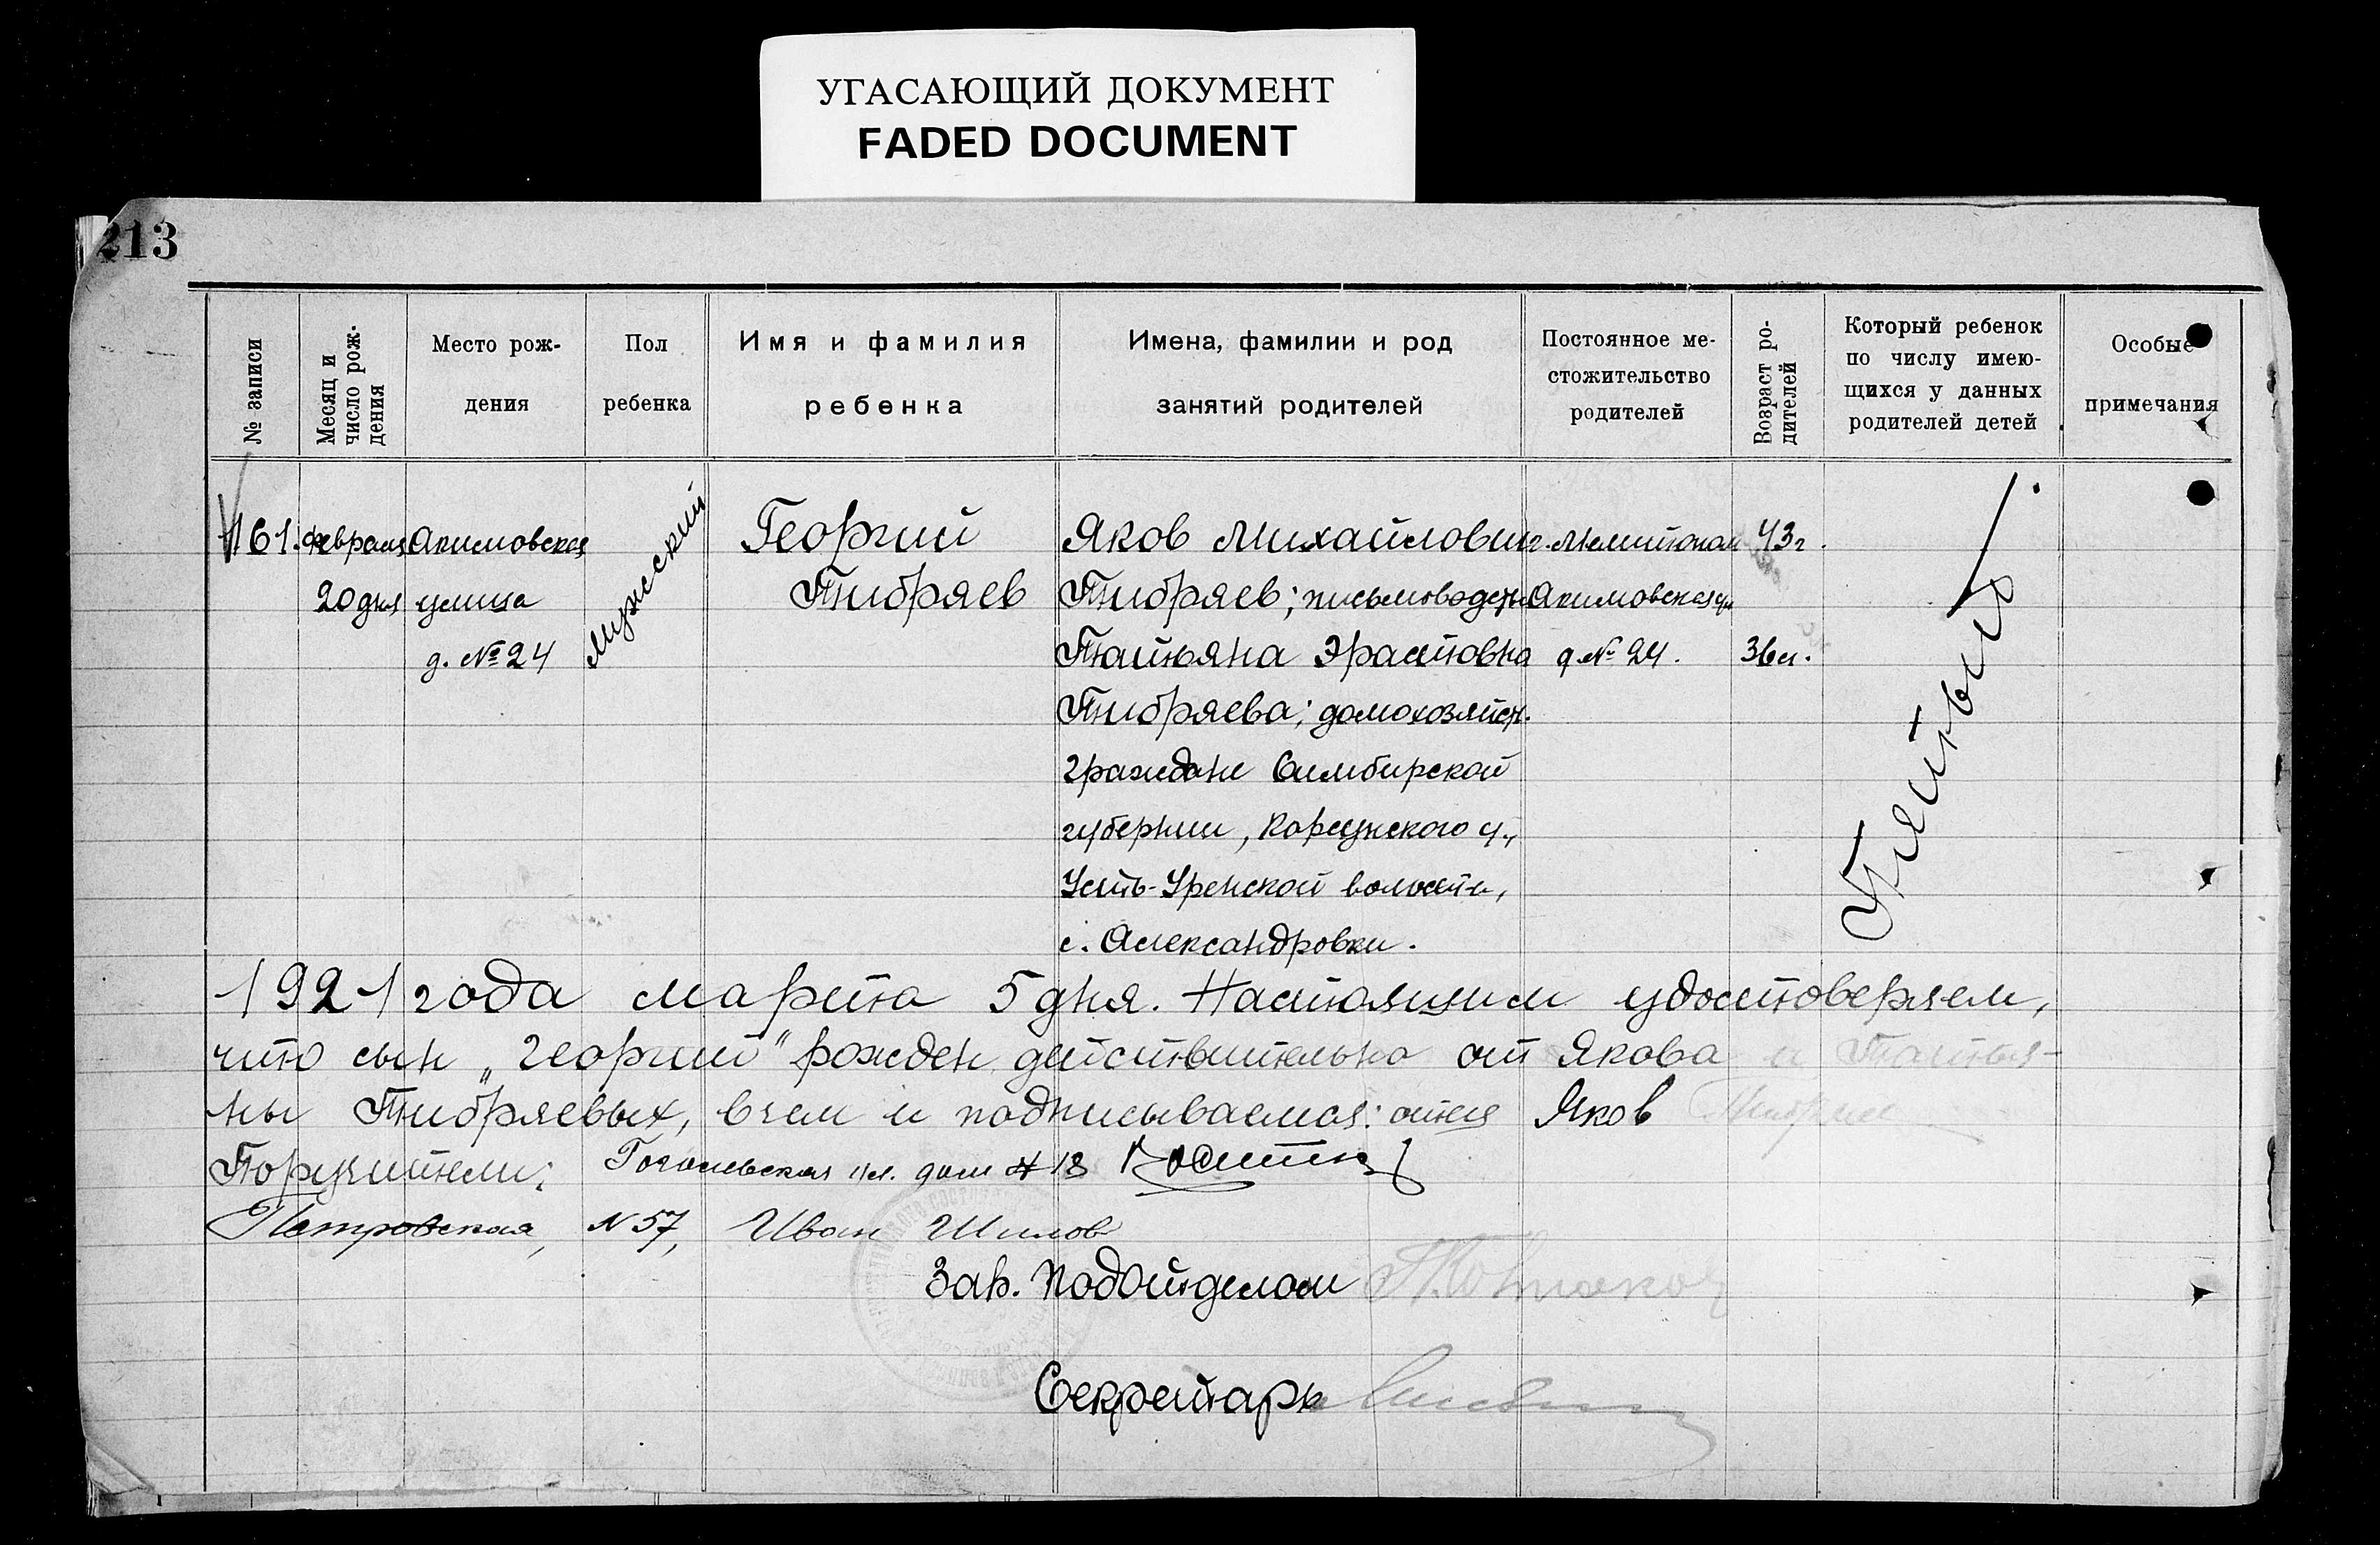 УГАСАЮЩИЙ ДОКУМЕНТ
FADED DOCUMENT
213
№ записи
Месяц и число рож-
дения
Место рож-
дения
Пол
ребенка
Имя и фамилия
ребенка
Имена, фамилии и род
занятий родителей
Постоянное ме-
стожительство
родителей
Возраст ро-
дителей
Который ребенок
по числу имею-
щихся у данных
родителей детей
Особые
примечания
161.
февраля
20 дня
Акимовская
улица
д. № 24
Мужский
Георгий
Тибряев
Яков Михайлович
Тибряев; письмоводит.
Татьяна Эрастовна
Тибряева; домохозяйст.
граждане Симбирской
губернии, Корсунского у.,
Усть-Уренской волости,
с. Александровки.
г. Мелитополь
Акимовская ул
д № 24.
43 г.
36 л.
Третьий
1921 года марта 5 дня. Настоящим удостоверяем,
что сын „Георгий" рожден действительно от Якова и Татья-
ны Тибряевых, в чем и подписываемся: отец Яков Тибряев
Поручители:
Гоголевская ул. дом # 18
Петровская, N 57, Иван Шилов
Зав. Подотделом
Секретарь